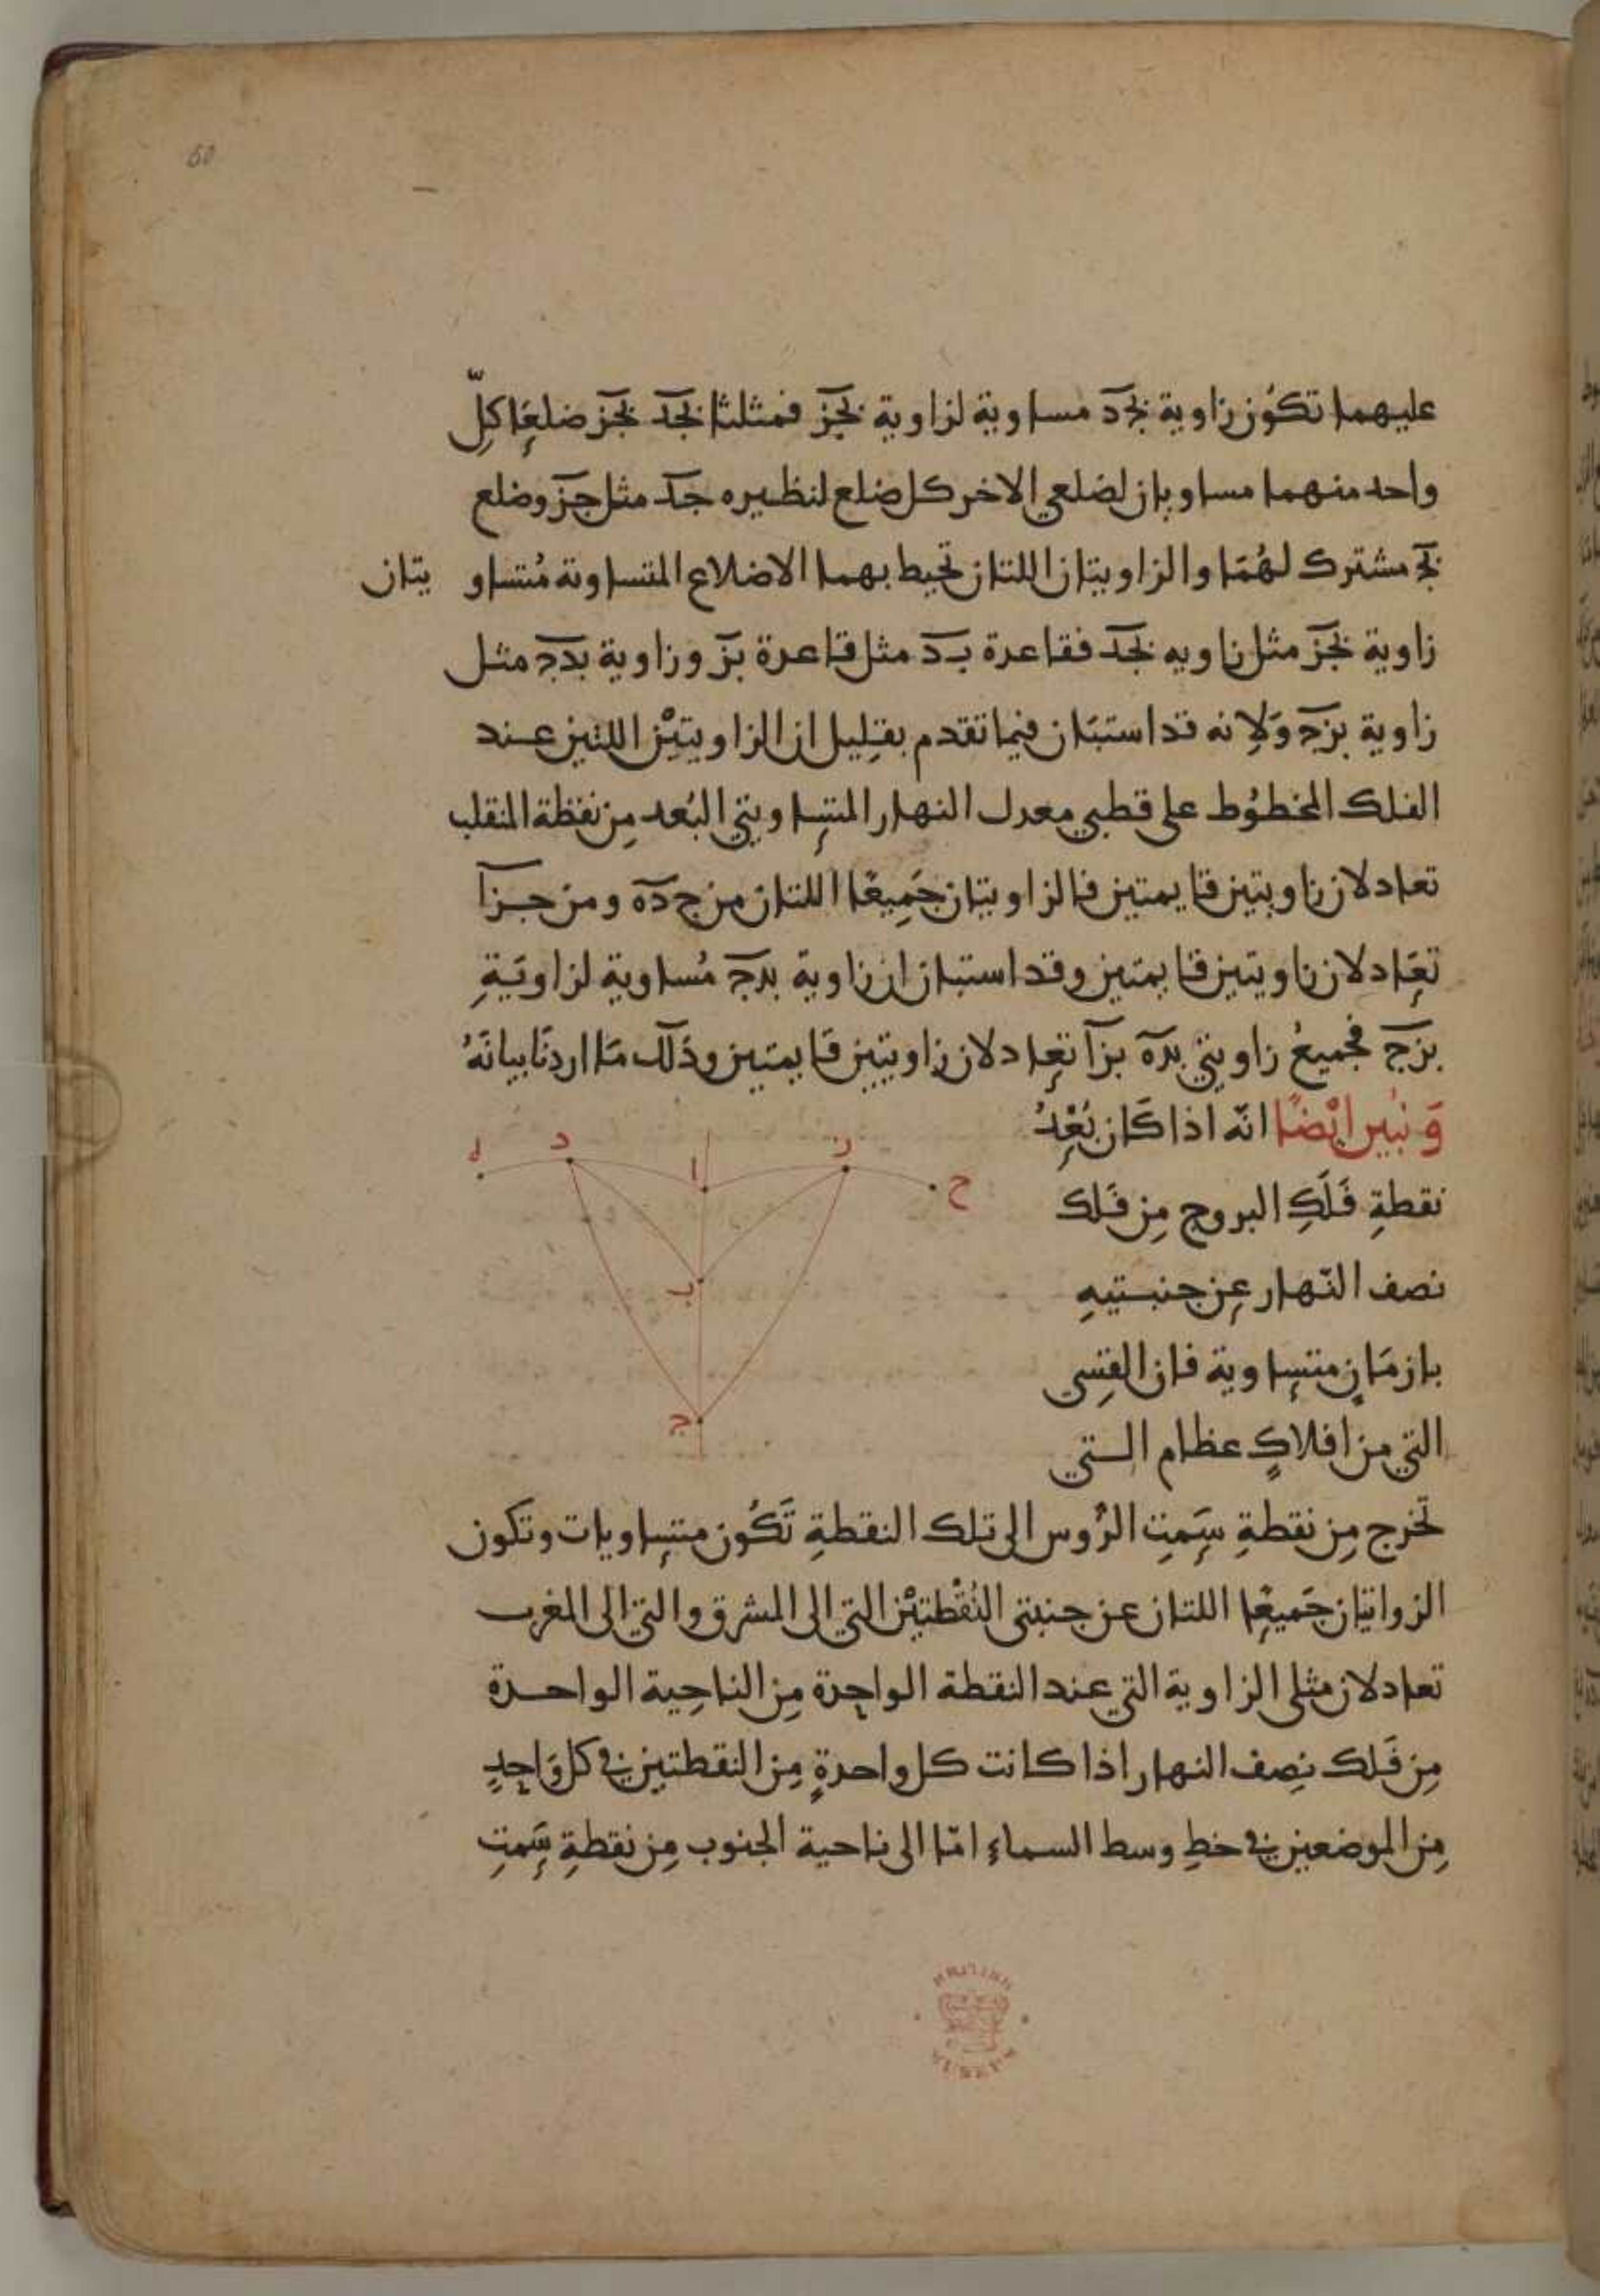 50
عليهما تكون زاوية بجد مساوية لزاوية بجز فمثلثا بجد بجز ضلعا كلّ
واحد منهما مساويان لضلعي الاخر كل ضلع لنظيره جد مثل جز وضلع
بج مشترك لهُمَا والزاويتان اللتان تحيط بهما الاضلاع المتساوية مُتساو يتان
زاوية بجز مثل زاويه بجد فقاعدة بد مثل قاعدة بز وزاوية بدج مثل
زاوية بزج وَلِانه قد استبَان فيما تقدم بقلِيل ان الزاويتيْن اللتين عند
الفلك المخطوُط على قطبي معدل النهار المتسِاويتي البُعد مِن نقطة المنقلب
تعادلان زاويتين قايمتين فالزاويتان جَمِيعًا اللتان من جده ومن جزا
تعِادلان زاويتين قايمتين وقد استبان ان زاوية بدج مُساوية لزاويَةِ
بزج فجميعُ زاويتي بده بزا تعِادلان زاويتين قَايمتين وذلك مَا اردنَا بيانَهُ
وَنبُين ايْضًا انّه اذا كَان بُعْدُ
نقطةِ فَلَكِ البروج مِن فَلك
نصف النّهار عِن جنبتيهِ
بازمَانٍ متسِاوية فان القِسي
التي من افلاكٍ عظام التي
تخرج مِن نقطةِ سَمتِ الرُوس الى تلك النقطةِ تَكُون متسِاويات وتكون
الزوايتان جَميعِا اللتان عن جنبتي النُقْطتيْن التي الى المشرق والتي الى المغرب
تعادلان مثلي الزاوية التي عند النقطة الواحِدة مِن الناحِية الواحدة
مِن فَلك نِصف النهار اذا كانت كل واحدةٍ مِن النقطتين في كل وَاحِدٍ
مِن الموضعين في خطِ وسط السماءِ امّا الى ناحية الجنوب مِن نقطةِ سَمتِ
د
ا
ز
ح
ب
ج